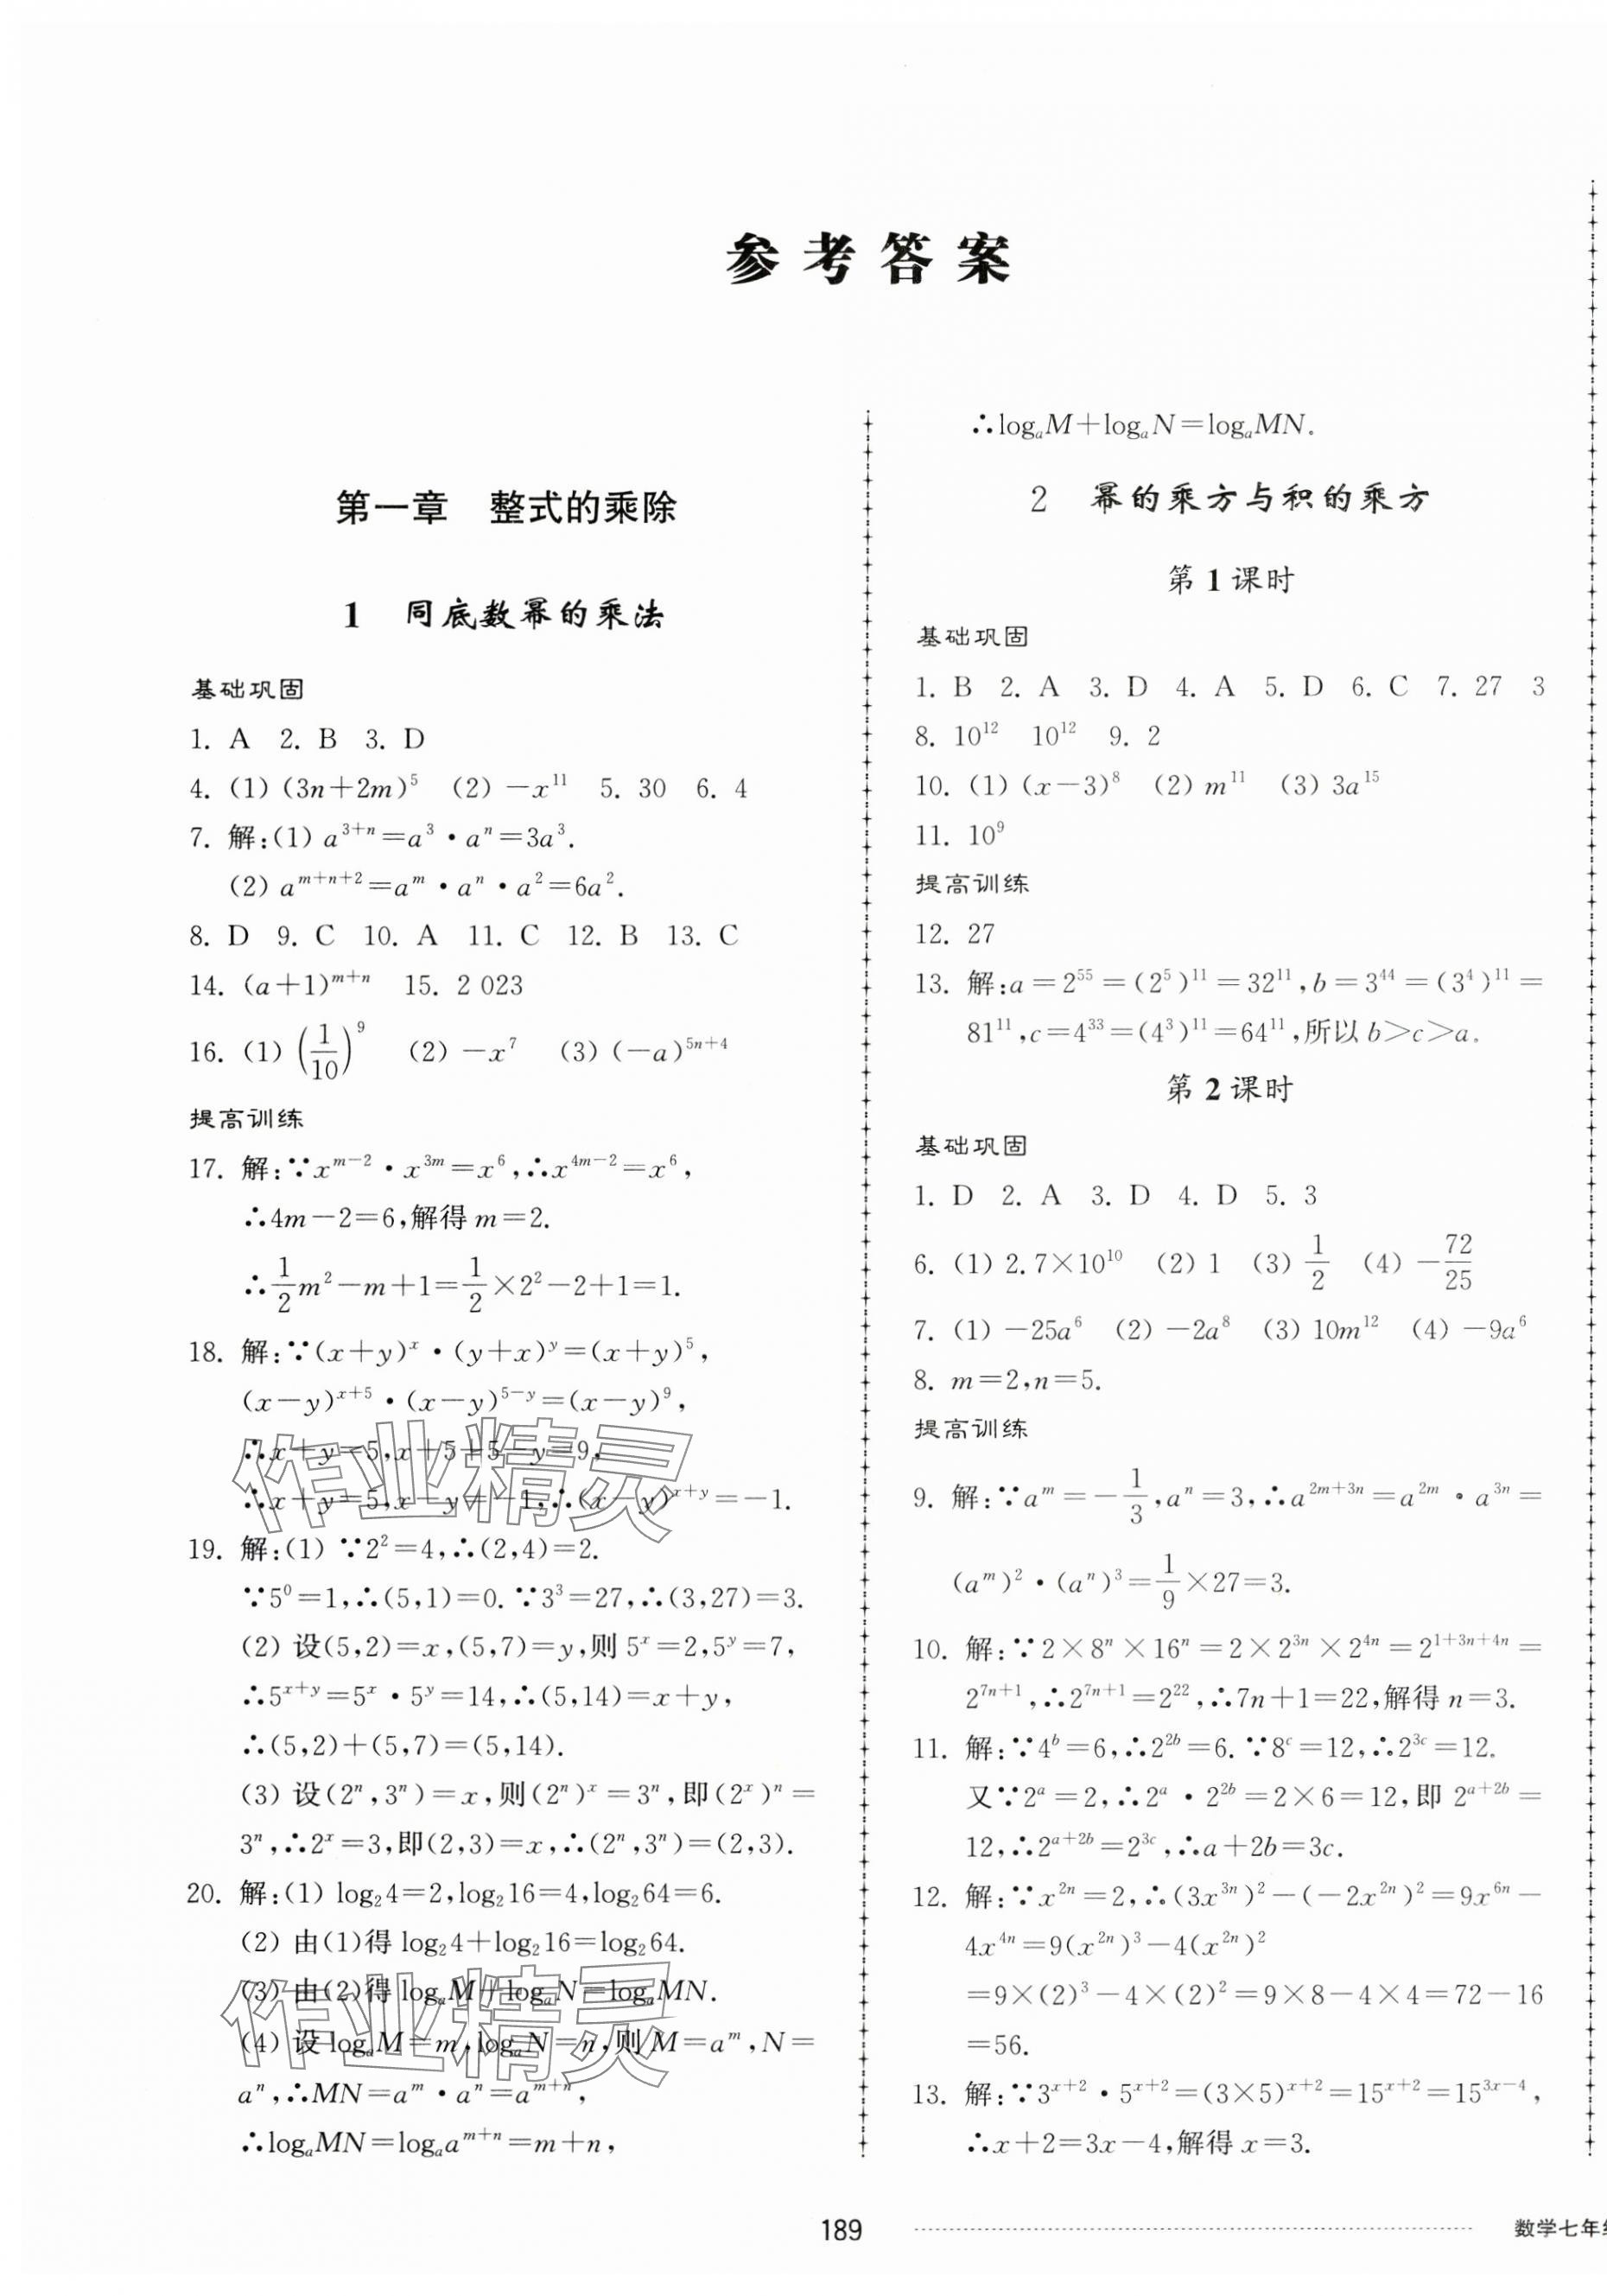 参考答案
第一章 整式的乘除
1 同底数幂的乘法
基础巩固
1. A 2. B 3. D
4. (1) (3n+2m)⁵ (2) −x¹¹ 5. 30 6. 4
7. 解:(1) a³⁺ⁿ=a³·aⁿ=3a³.
(2) a^{m+n+2}=a^m·a^n·a²=6a².
8. D 9. C 10. A 11. C 12. B 13. C
14. (a+1)^{m+n} 15. 2 023
16. (1) (1/10)⁹ (2) −x⁷ (3) (−a)^{5n+4}
提高训练
17. 解:∵x^{m−2}·x^{3m}=x⁶,∴x^{4m−2}=x⁶,
∴4m−2=6,解得 m=2.
∴1/2m²−m+1=1/2×2²−2+1=1.
18. 解:∵(x+y)^x·(y+x)^y=(x+y)⁵,
(x−y)^{x+5}·(x−y)^{5−y}=(x−y)⁹,
∴x+y=5,x+5+5−y=9,
∴x+y=5,x−y=−1,∴(x−y)^{x+y}=−1.
19. 解:(1) ∵2²=4,∴(2,4)=2.
∵5⁰=1,∴(5,1)=0. ∵3³=27,∴(3,27)=3.
(2) 设(5,2)=x,(5,7)=y,则 5^x=2,5^y=7,
∴5^{x+y}=5^x·5^y=14,∴(5,14)=x+y,
∴(5,2)+(5,7)=(5,14).
(3) 设(2ⁿ,3ⁿ)=x,则(2ⁿ)^x=3ⁿ,即(2^x)ⁿ=
3ⁿ,∴2^x=3,即(2,3)=x,∴(2ⁿ,3ⁿ)=(2,3).
20. 解:(1) log₂4=2,log₂16=4,log₂64=6.
(2) 由(1)得 log₂4+log₂16=log₂64.
(3) 由(2)得 logₐM+logₐN=logₐMN.
(4) 设 logₐM=m,logₐN=n,则 M=a^m,N=
a^n,∴MN=a^m·a^n=a^{m+n},
∴logₐMN=logₐa^{m+n}=m+n,
∴logₐM+logₐN=logₐMN.
2 幂的乘方与积的乘方
第1课时
基础巩固
1. B 2. A 3. D 4. A 5. D 6. C 7. 27 3
8. 10¹² 10¹² 9. 2
10. (1) (x−3)⁸ (2) m¹¹ (3) 3a¹⁵
11. 10⁹
提高训练
12. 27
13. 解:a=2⁵⁵=(2⁵)¹¹=32¹¹,b=3⁴⁴=(3⁴)¹¹=
81¹¹,c=4³³=(4³)¹¹=64¹¹,所以 b>c>a.
第2课时
基础巩固
1. D 2. A 3. D 4. D 5. 3
6. (1) 2.7×10¹⁰ (2) 1 (3) 1/2 (4) −72/25
7. (1) −25a⁶ (2) −2a⁸ (3) 10m¹² (4) −9a⁶
8. m=2,n=5.
提高训练
9. 解:∵a^m=−1/3,a^n=3,∴a^{2m+3n}=a^{2m}·a^{3n}=
(a^m)²·(a^n)³=1/9×27=3.
10. 解:∵2×8ⁿ×16ⁿ=2×2^{3n}×2^{4n}=2^{1+3n+4n}=
2^{7n+1},∴2^{7n+1}=2²²,∴7n+1=22,解得 n=3.
11. 解:∵4^b=6,∴2^{2b}=6. ∵8^c=12,∴2^{3c}=12.
又∵2^a=2,∴2^a·2^{2b}=2×6=12,即 2^{a+2b}=
12,∴2^{a+2b}=2^{3c},∴a+2b=3c.
12. 解:∵x^{2n}=2,∴(3x^{3n})²−(−2x^{2n})²=9x^{6n}−
4x^{4n}=9(x^{2n})³−4(x^{2n})²
=9×(2)³−4×(2)²=9×8−4×4=72−16
=56.
13. 解:∵3^{x+2}·5^{x+2}=(3×5)^{x+2}=15^{x+2}=15^{3x−4},
∴x+2=3x−4,解得 x=3.
作业精灵
作业精灵
189
数学七年